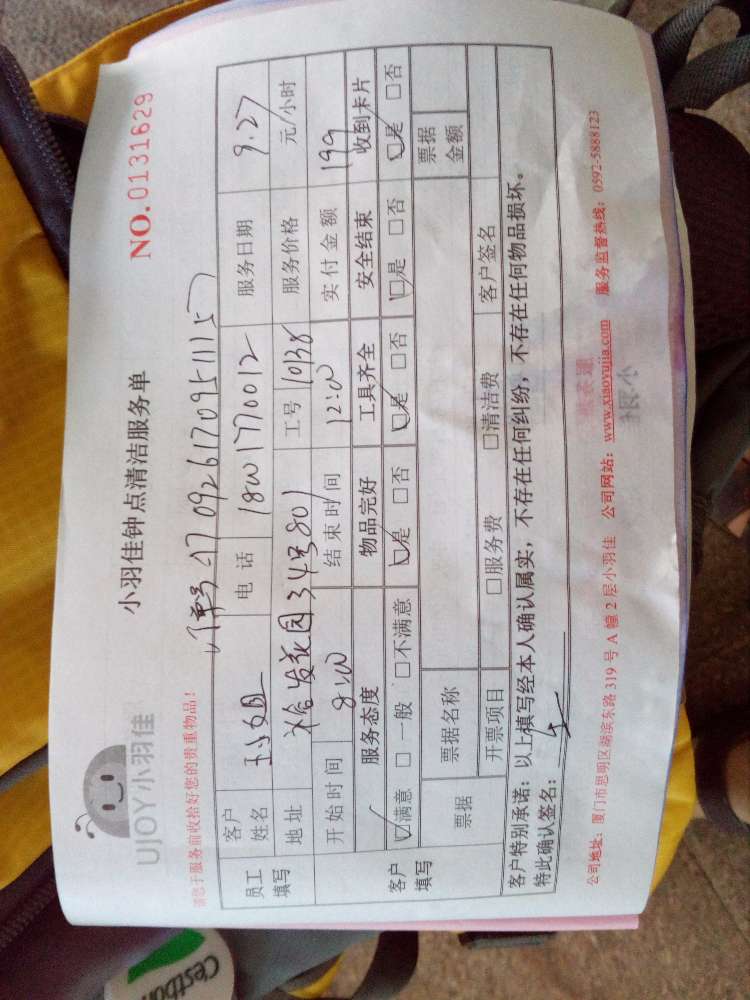 UJOY小羽佳
小羽佳钟点清洁服务单
NO.0131629
请您于服务前收拾好您的贵重物品!
订单号 17092617095111157
员工填写 客户姓名 电话 18001770012 服务日期 9.27
地址 裕发花园34号801 工号 10138 服务价格 元/小时
客户填写 开始时间 8:00 结束时间 12:00 实付金额 199
服务态度 物品完好 工具齐全 安全结束 收到卡片
☑满意 □一般 □不满意 ☑是 □否 ☑是 □否 ☑是 □否 ☑是 □否
票据 票据名称 票据金额
开票项目 □服务费 □清洁费 客户签名
客户特别承诺:以上填写经本人确认属实,不存在任何纠纷,不存在任何物品损坏。
特此确认签名:
公司地址:厦门市思明区湖滨东路 319 号 A 幢 2 层小羽佳 公司网站:www.xiaoyujia.com 服务监督热线:0592-5888123
Cestbon